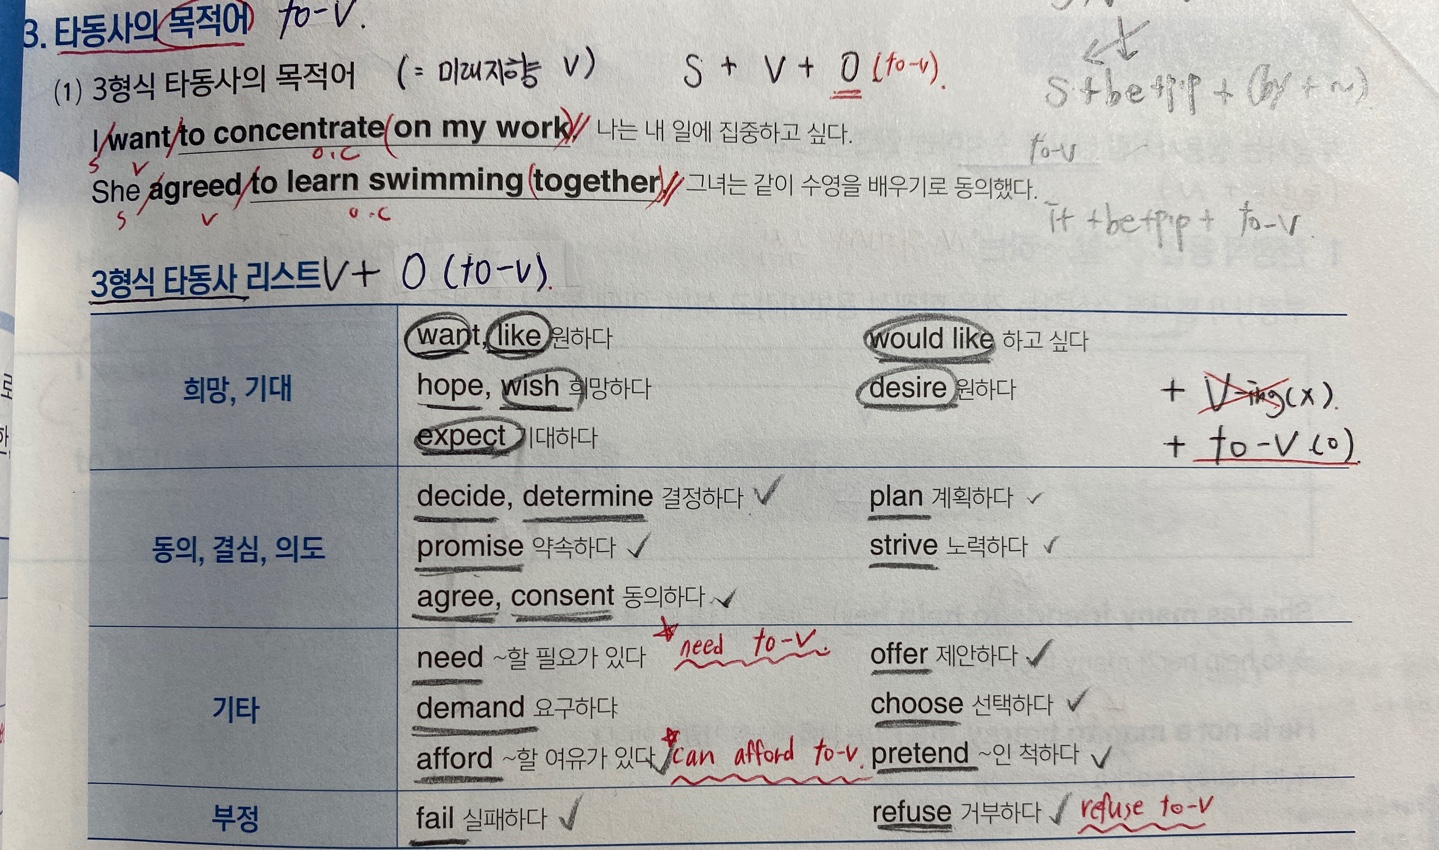 3. 타동사의 목적어 to-V.
(1) 3형식 타동사의 목적어 (= 미래지향 V) S + V + O (to-v).
I want to concentrate (on my work) 나는 내 일에 집중하고 싶다.
S V O.C
She agreed to learn swimming (together) 그녀는 같이 수영을 배우기로 동의했다.
S V O.C
S+be+p.p + (by + ~)
to-v
it +be+p.p + to-V
3형식 타동사 리스트 V + O (to-v).
희망, 기대
want, like 원하다 would like 하고 싶다
hope, wish 희망하다 desire 원하다 + V-ing (x).
expect 기대하다 + to-V (o)
동의, 결심, 의도
decide, determine 결정하다 plan 계획하다
promise 약속하다 strive 노력하다
agree, consent 동의하다
기타
need ~할 필요가 있다 need to-V. offer 제안하다
demand 요구하다 choose 선택하다
afford ~할 여유가 있다 can afford to-v. pretend ~인 척하다
부정
fail 실패하다 refuse 거부하다 refuse to-V